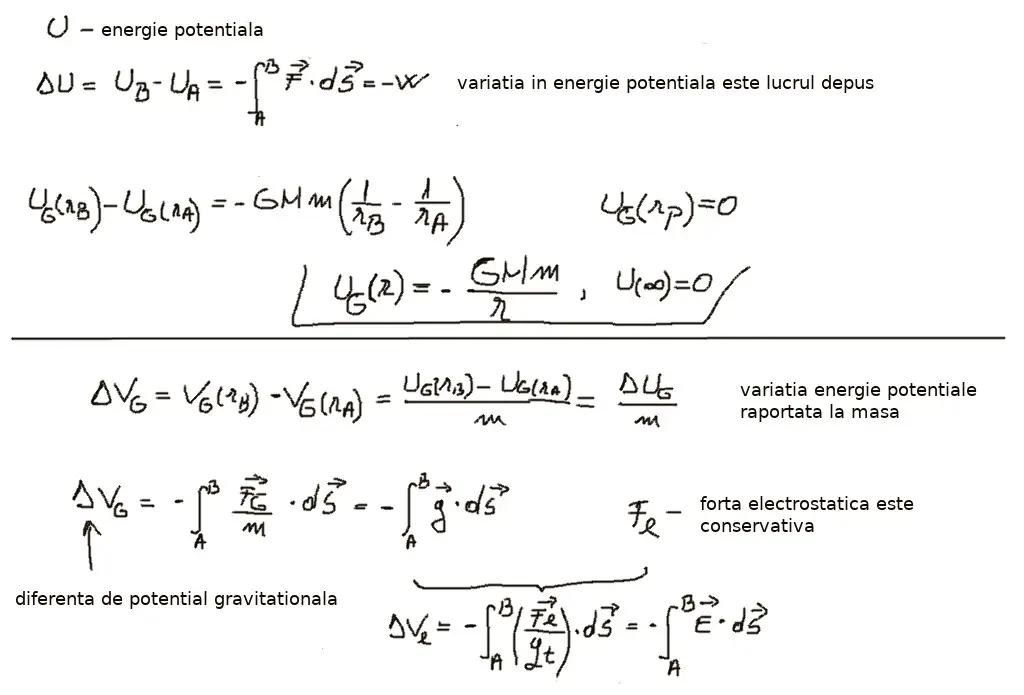 U – energie potentiala
ΔU = U_B - U_A = -∫_A^B F⃗ · dS⃗ = -W variatia in energie potentiala este lucrul depus
U_G(r_B) - U_G(r_A) = -GMm(1/r_B - 1/r_A) U_G(r_P) = 0
U_G(r) = - GMm/r , U(∞) = 0
ΔV_G = V_G(r_B) - V_G(r_A) = (U_G(r_B) - U_G(r_A))/m = ΔU_G/m variatia energie potentiale
raportata la masa
ΔV_G = -∫_A^B F⃗_G/m · dS⃗ = -∫_A^B g⃗ · dS⃗ F_e – forta electrostatica este
conservativa
diferenta de potential gravitationala
ΔV_e = -∫_A^B (F⃗_e/q_t) · dS⃗ = -∫_A^B E⃗ · dS⃗